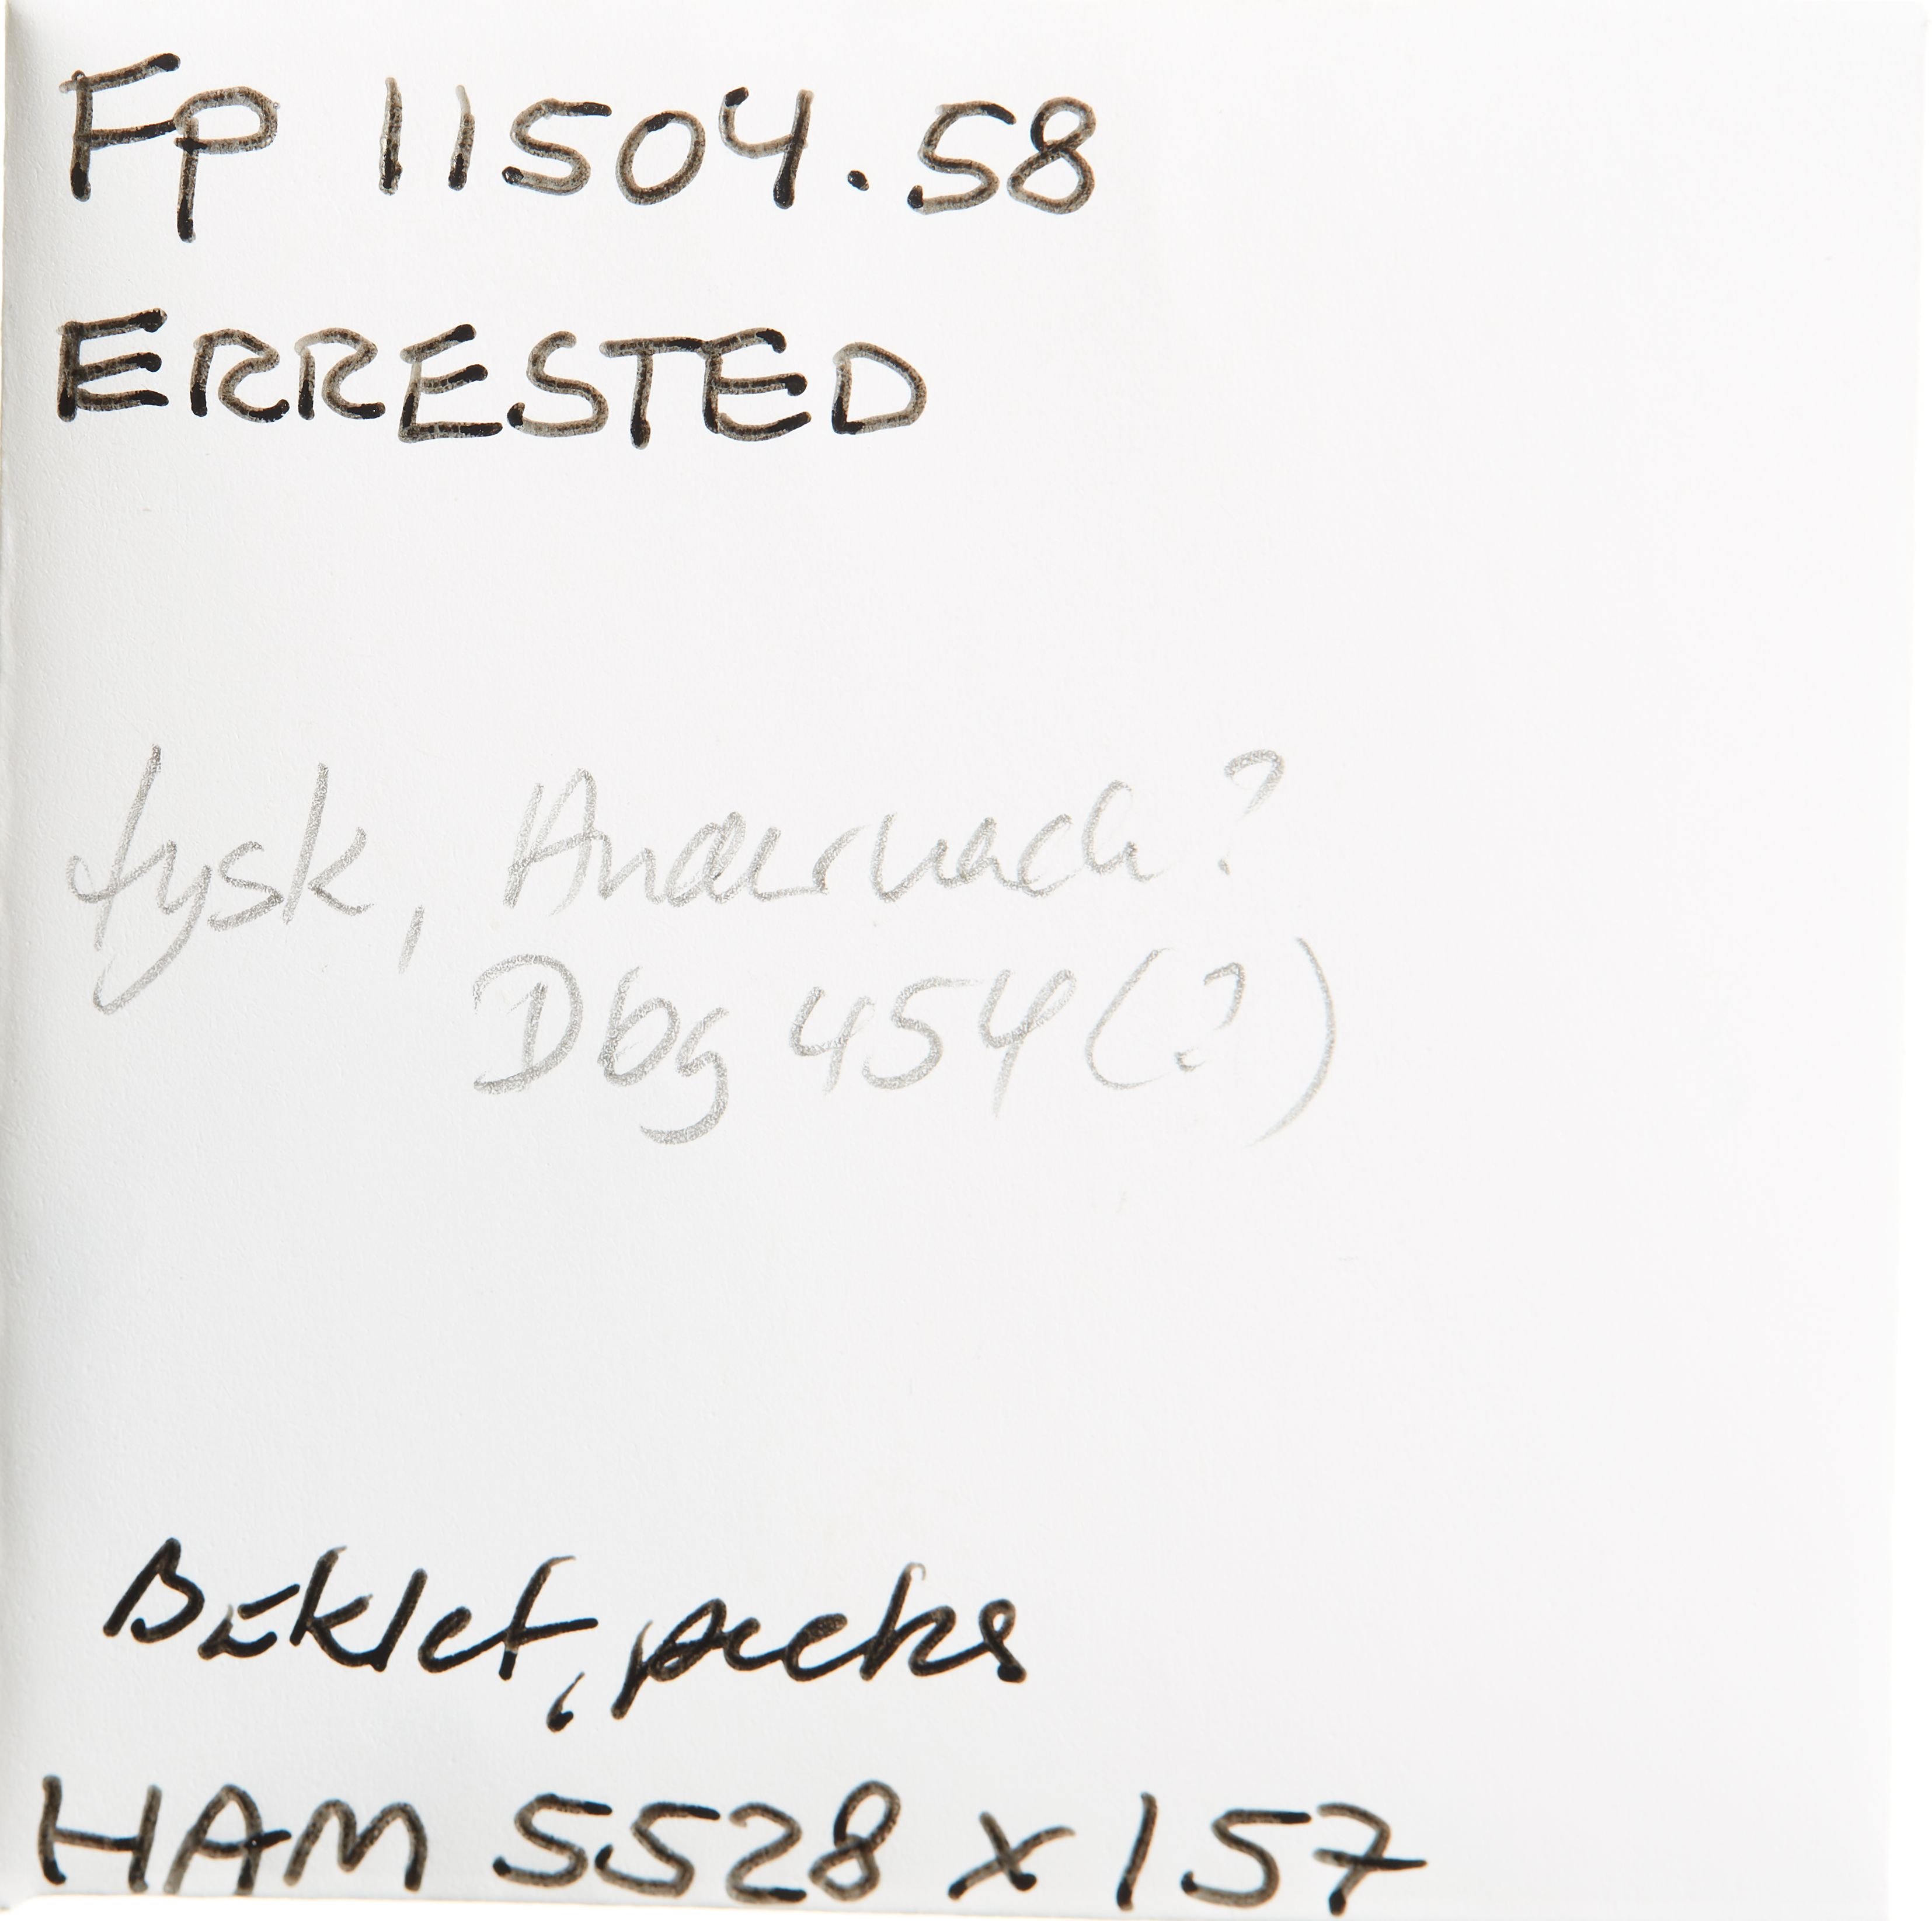 Fp 11504.58
ERRESTED
tysk, Andernach?
Dbg 454(?)
Beklet,
HAM 5528 x 157